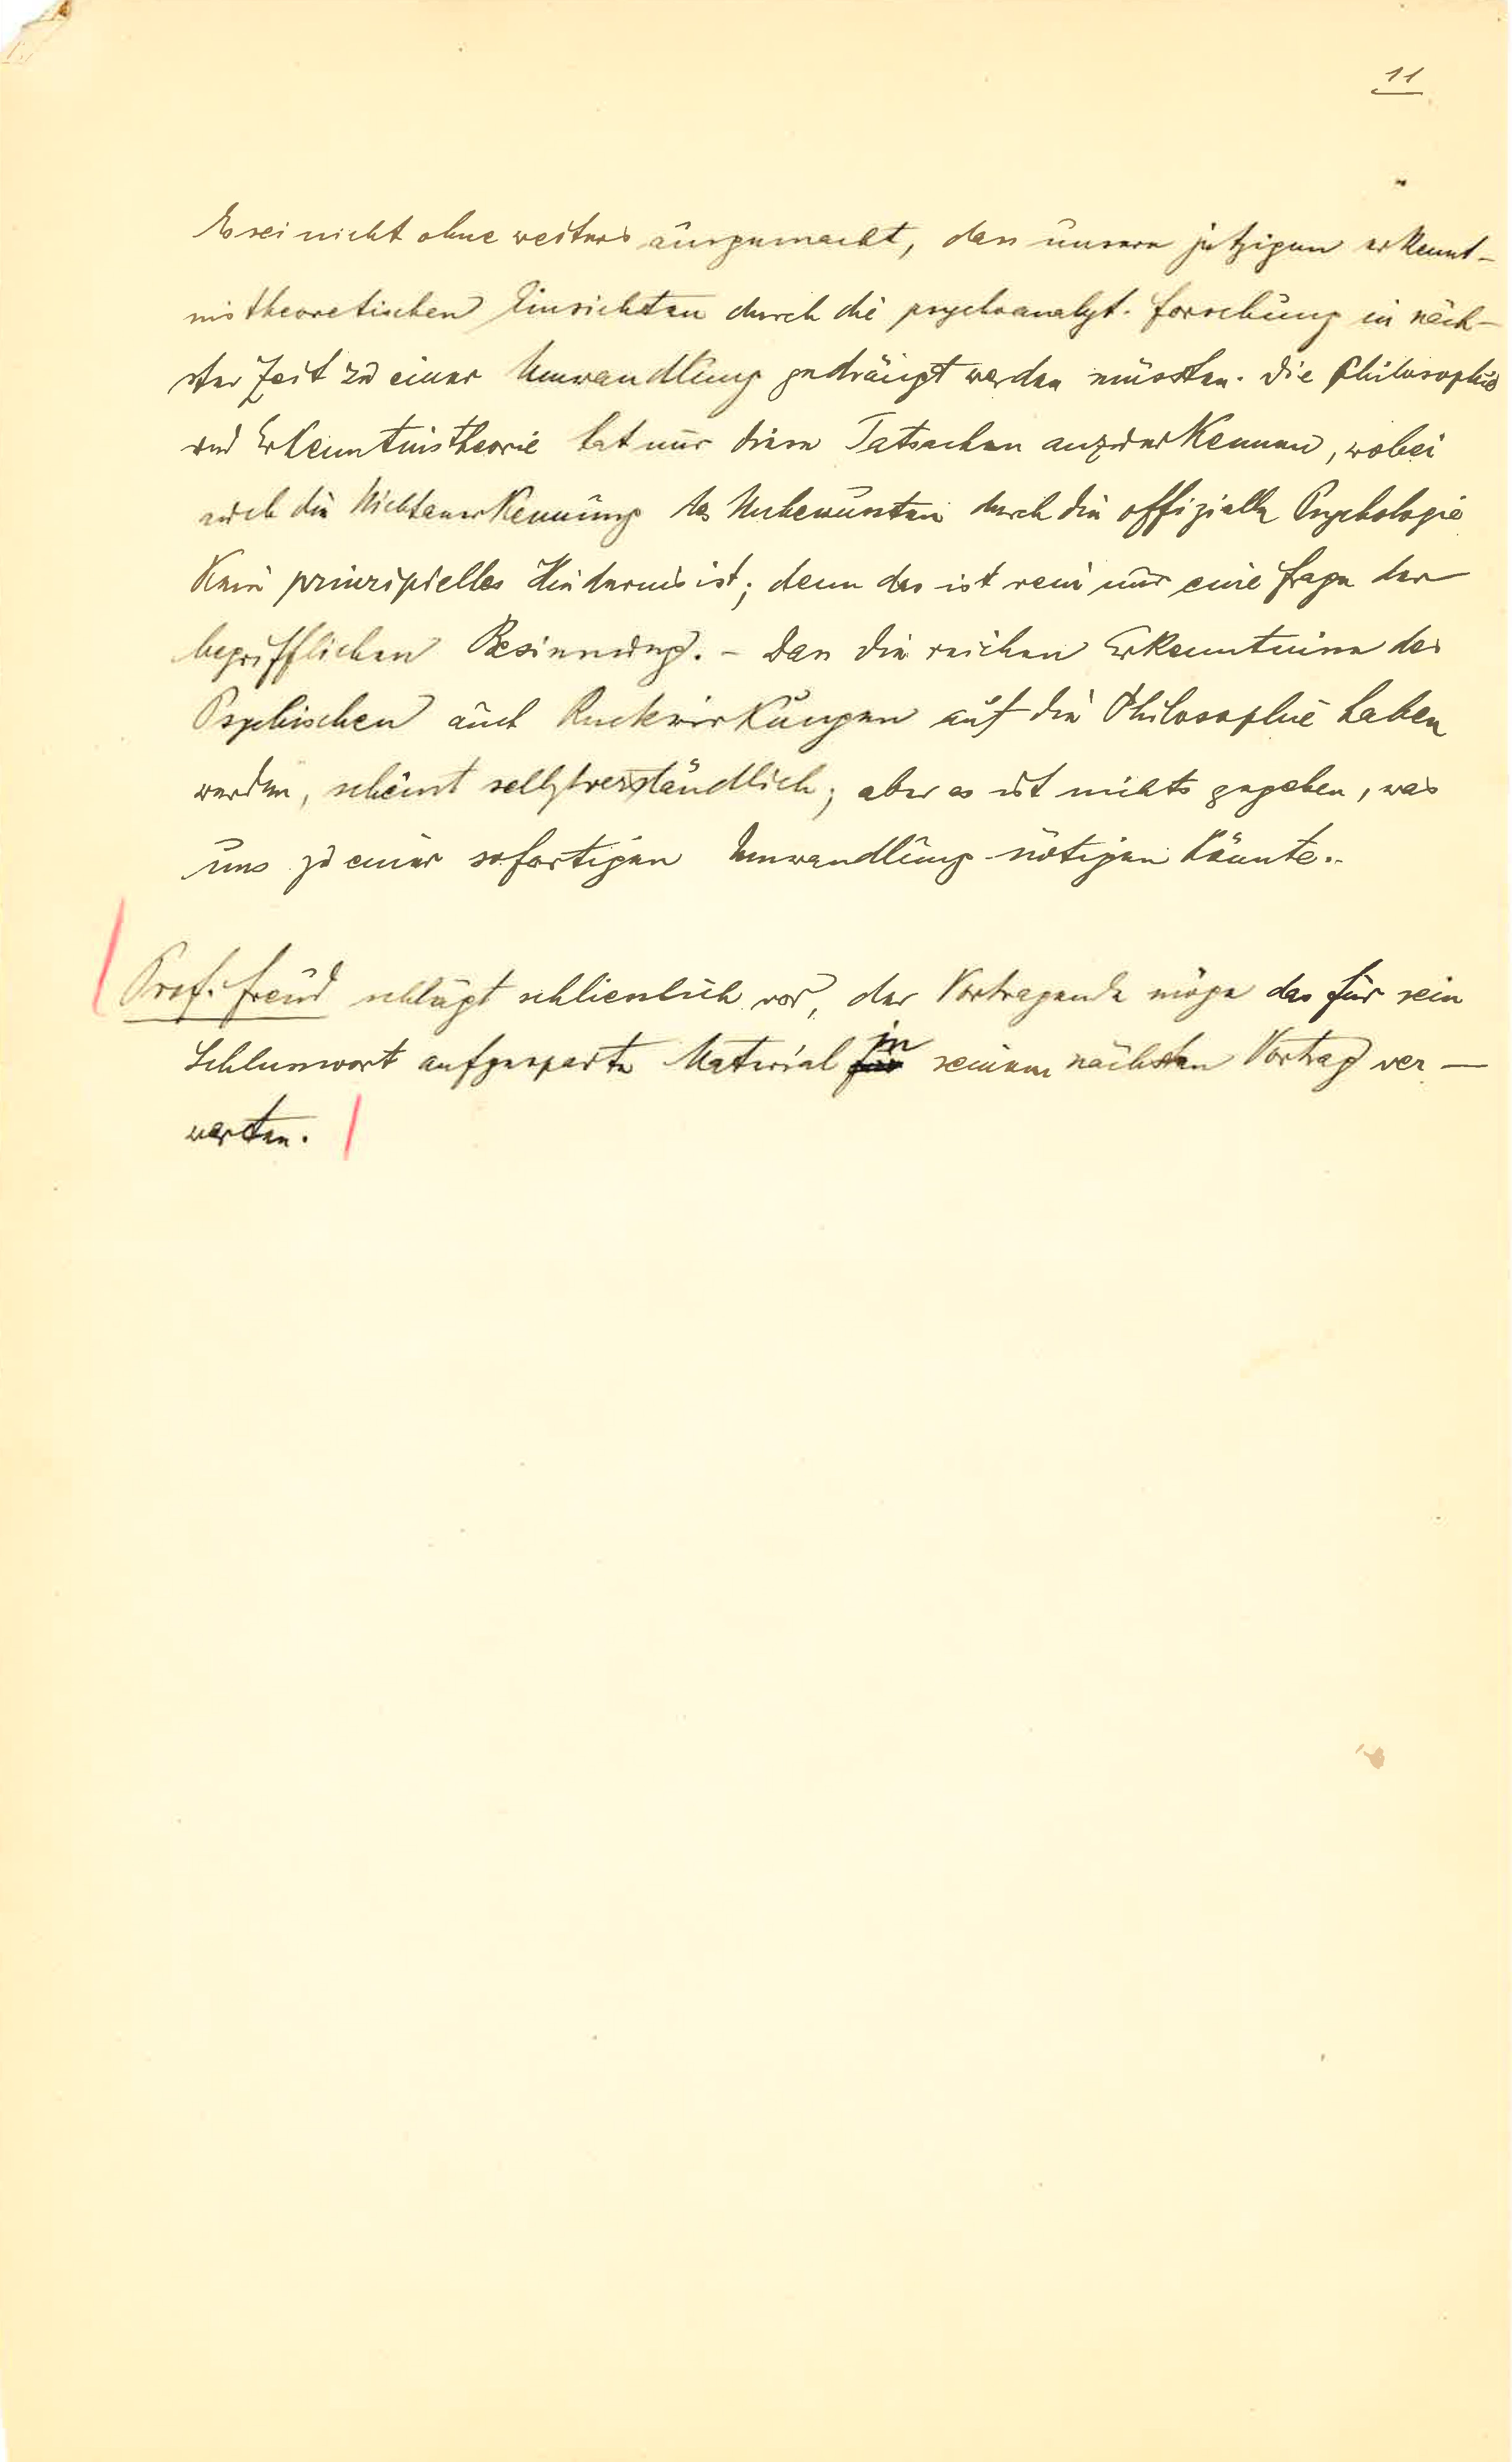 11
Es sei nicht ohne weiters ausgemacht, dass unsere jetzigen erkennt-
nistheoretischen Einsichten durch die psychoanalyt. Forschung in näch-
ster Zeit zu einer Umwandlung gedrängt werden müssten. Die Philosophie
und Erkenntnistheorie hat nur diese Tatsachen anzuerkennen, wobei
auch die Nichtanerkennung des Unbewussten durch die offizielle Psychologie
kein prinzipielles Hindernis ist; denn das ist rein nur eine Frage der
begrifflichen Besinnung. – Dass die reichen Erkenntnisse des
Psychischen auch Rückwirkungen auf die Philosophie haben
werden, scheint selbstverständlich; aber es ist nichts gegeben, was
uns zu einer sofortigen Umwandlung nötigen könnte.-
Prof. Freud schlägt schliesslich vor, der Vortragende möge das für sein
Schlusswort aufgesparte Material für in seinem nächsten Vortrag ver-
werten.